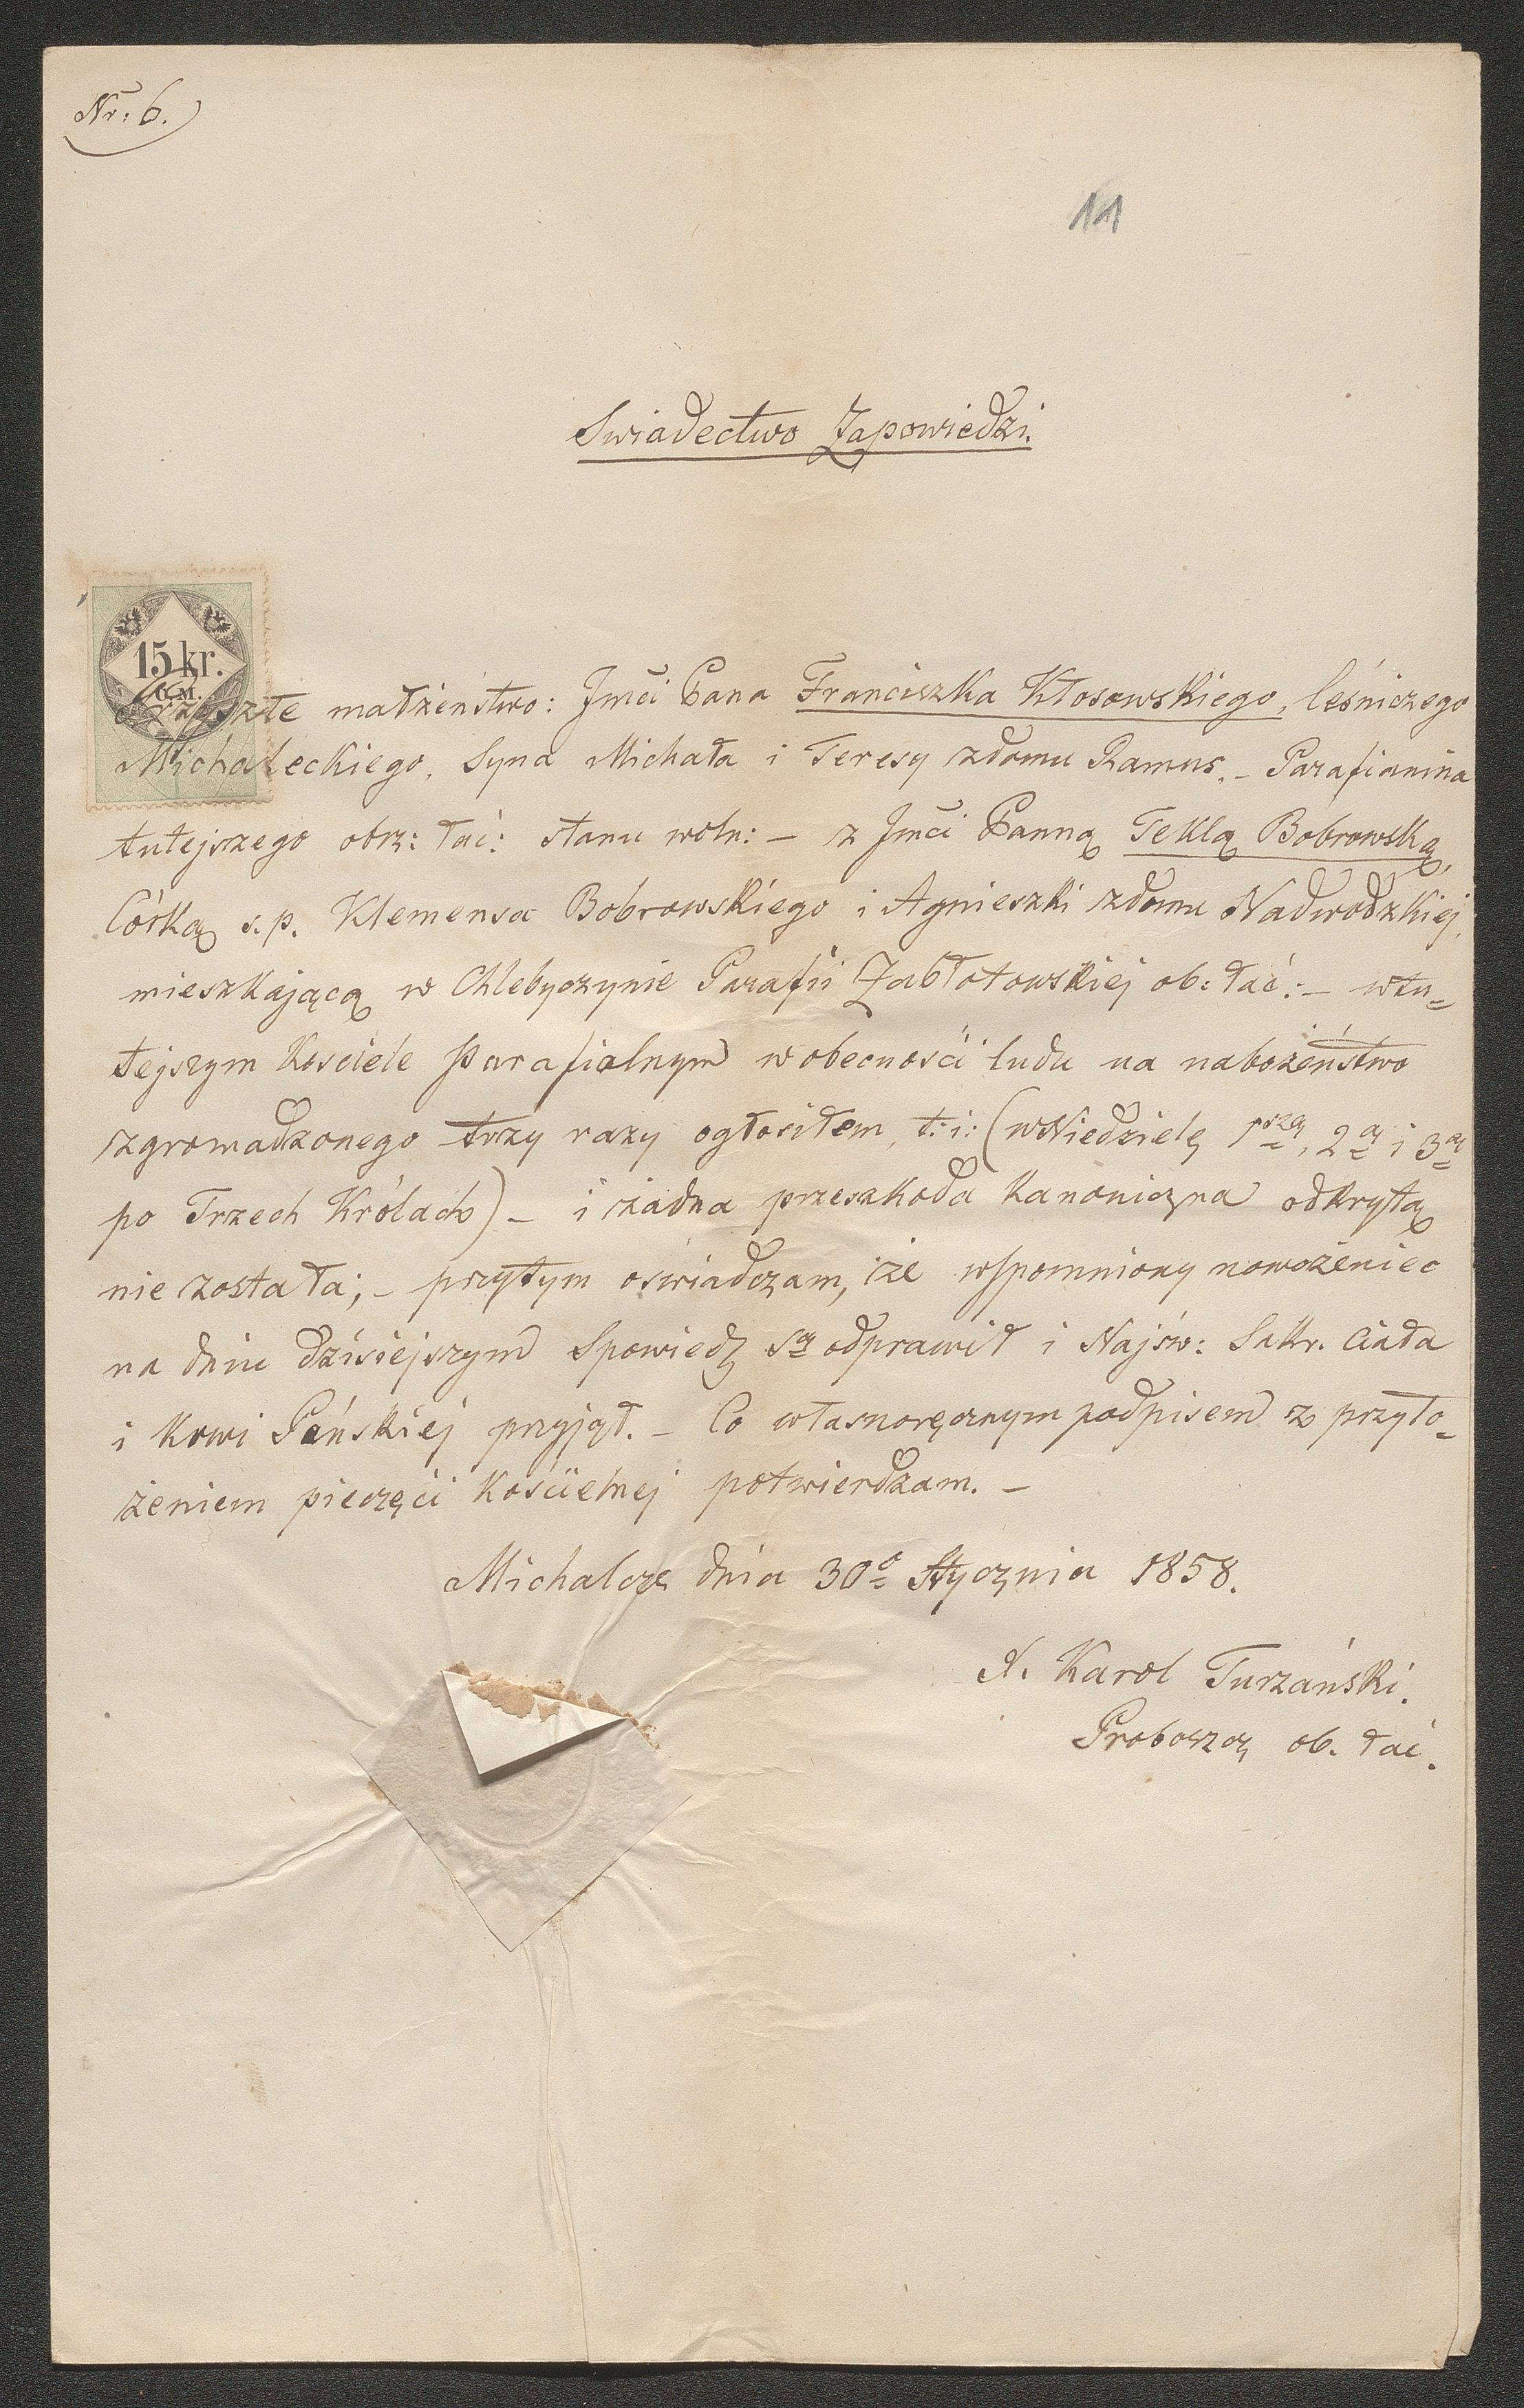 Nr: 6.
11
Swiadectwo Zapowiedzi.
15 kr.
C.M.
Przyszłe małżeństwo: Jmći Pana Franciszka Kłosowskiego, leśniczego
Michaleckiego, Syna Michała i Teresy zdomu Ramus, - Parafianina
tutejszego obrz: łać: stanu woln: - z Jmći Panną Teklą Bobrowską,
Córką s.p. Klemensa Bobrowskiego i Agnieszki zdomu Nadwodzkiej,
mieszkającą w Chlebyczynie Parafii Zabłotowskiej ob: łać: - wtu=
tejszym Kościele Parafialnym w obecności ludu na nabożeństwo
zgromadzonego trzy razy ogłosiłem, t: i: (wNiedzielę 1szą, 2ą i 3ą
po Trzech Królach) - i żadna przeszkoda kanoniczna odkrytą
nie została; - przytym oświadczam, iże wspomniony nowożeniec
na dniu dzisiejszym Spowiedz Są odprawił i Najśw: Sakr. Ciała
i Krwi Pańskiej przyjął. - Co własnoręcznym podpisem z przyło=
żeniem pieczęći Kośćielnej potwierdzam. -
Michalcze dnia 30o Stycznia 1858.
X. Karol Turzański.
Proboszcz ob. łać.